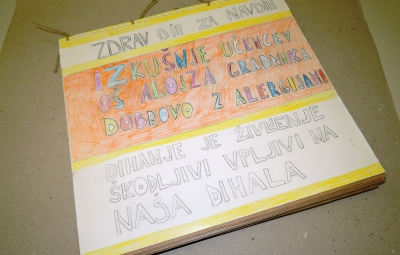 ZDRAV DIH ZA NAVDIH
IZKUŠNJE UČENCEV
OŠ ALOJZA GRADNIKA
DOBROVO Z ALERGIJAMI
DIHANJE JE ŽIVLJENJE
ŠKODLJIVI VPLJIVI NA
NAŠA DIHALA